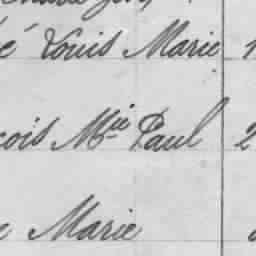 é Louis Marie 1
çois Mie Paul 2
e Marie